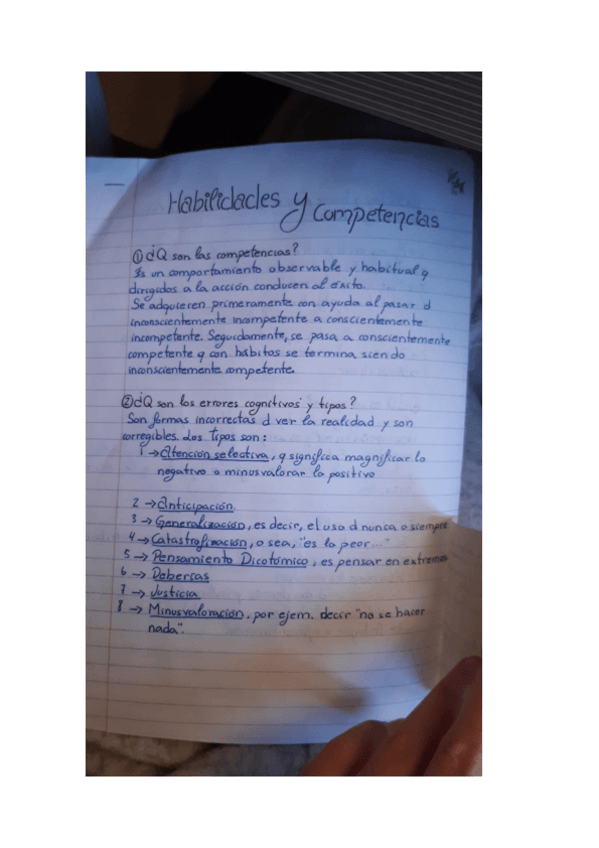 Habilidades y competencias
① ¿Q son las competencias?
Es un comportamiento observable y habitual q
dirigidos a la acción conducen al éxito.
Se adquieren primeramente con ayuda al pasar d
inconscientemente incompetente a conscientemente
incompetente. Seguidamente, se pasa a conscientemente
competente q con hábitos se termina siendo
inconscientemente competente.
② ¿Q son los errores cognitivos y tipos?
Son formas incorrectas d ver la realidad y son
corregibles. Los tipos son:
1 → Atención selectiva, q significa magnificar lo
negativo o minusvalorar lo positivo
2 → Anticipación.
3 → Generalización, es decir, el uso d nunca o siempre
4 → Catastrofización, o sea, "es lo peor..."
5 → Pensamiento Dicotómico, es pensar en extremos
6 → Deberías
7 → Justicia
8 → Minusvaloración, por ejem. decir "no se hacer
nada".